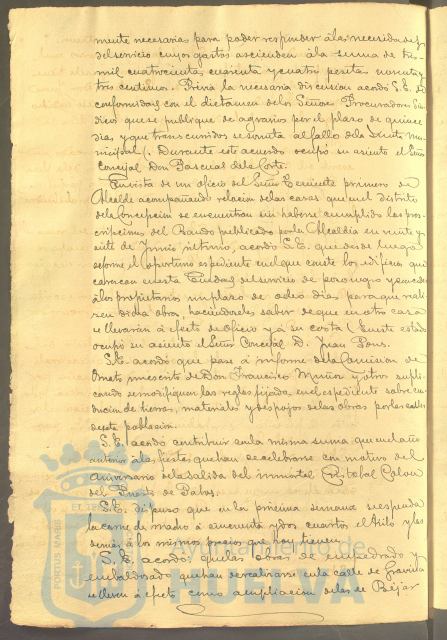 mente necesarias para poder responder á las necesidades
del servicio cuyos gastos ascienden á la suma de tres
mil cuatrocientas cuarenta y cuatro pesetas noventa y
tres centimos. Previa la necesaria discusion acordó S.E. de
conformidad con el dictamen de los Señores Procuradores Sin-
dicos que se publique de agravios por el plazo de quince
dias, y que transcurridos se someta al fallo de la Junta Mu-
nicipal. Durante este acuerdo ocupó su asiento el Señor
Concejal Don Pascual de la Corte.
En vista de un oficio del Señor Teniente primero de
Alcalde acompañando relacion de las casas que en el distrito
de la Concepcion se encuentran sin haberse cumplido las pres-
cripciones del Bando publicado por la Alcaldia en veinte y
siete de Junio ultimo, acordó S.E. que desde luego
se forme el oportuno espediente en el que conste los edificios que
carezcan en esta Ciudad del servicio de pozo negro y se conceda
á los propietarios un plazo de ocho dias para que reali-
zen dicha obra, haciendoles saber de que en otro caso
se llevarán á efecto de oficio y á su costa. En este estado
ocupó su asiento el Señor Concejal D. Juan Pons.
S.E. acordó que pase á informe de la Comision de
Ornato un escrito de Don Francisco Muñoz y otros supli-
cando se modifiquen las reglas fijadas en el espediente sobre con-
duccion de tierras, materiales y despojos de las obras por las calles
de esta poblacion.
S.E. acordó contribuir con la misma suma que en el año
anterior á las fiestas que han de celebrarse con motivo del
aniversario de la salida del inmortal Cristobal Colon
del Puerto de Palos.
S.E. dispuso que en la proxima semana se espenda
la carne de macho á cincuenta y dos cuartos el kilo y las
demas á los mismos precios que hoy tienen.
S.E. acordó: que las obras de empedrado y
embaldosado que han de realizarse en la calle de Gravina
se lleven á efecto como ampliacion de las de Béjar
PORTUS MARIS
Ayuntamiento de
HUELVA